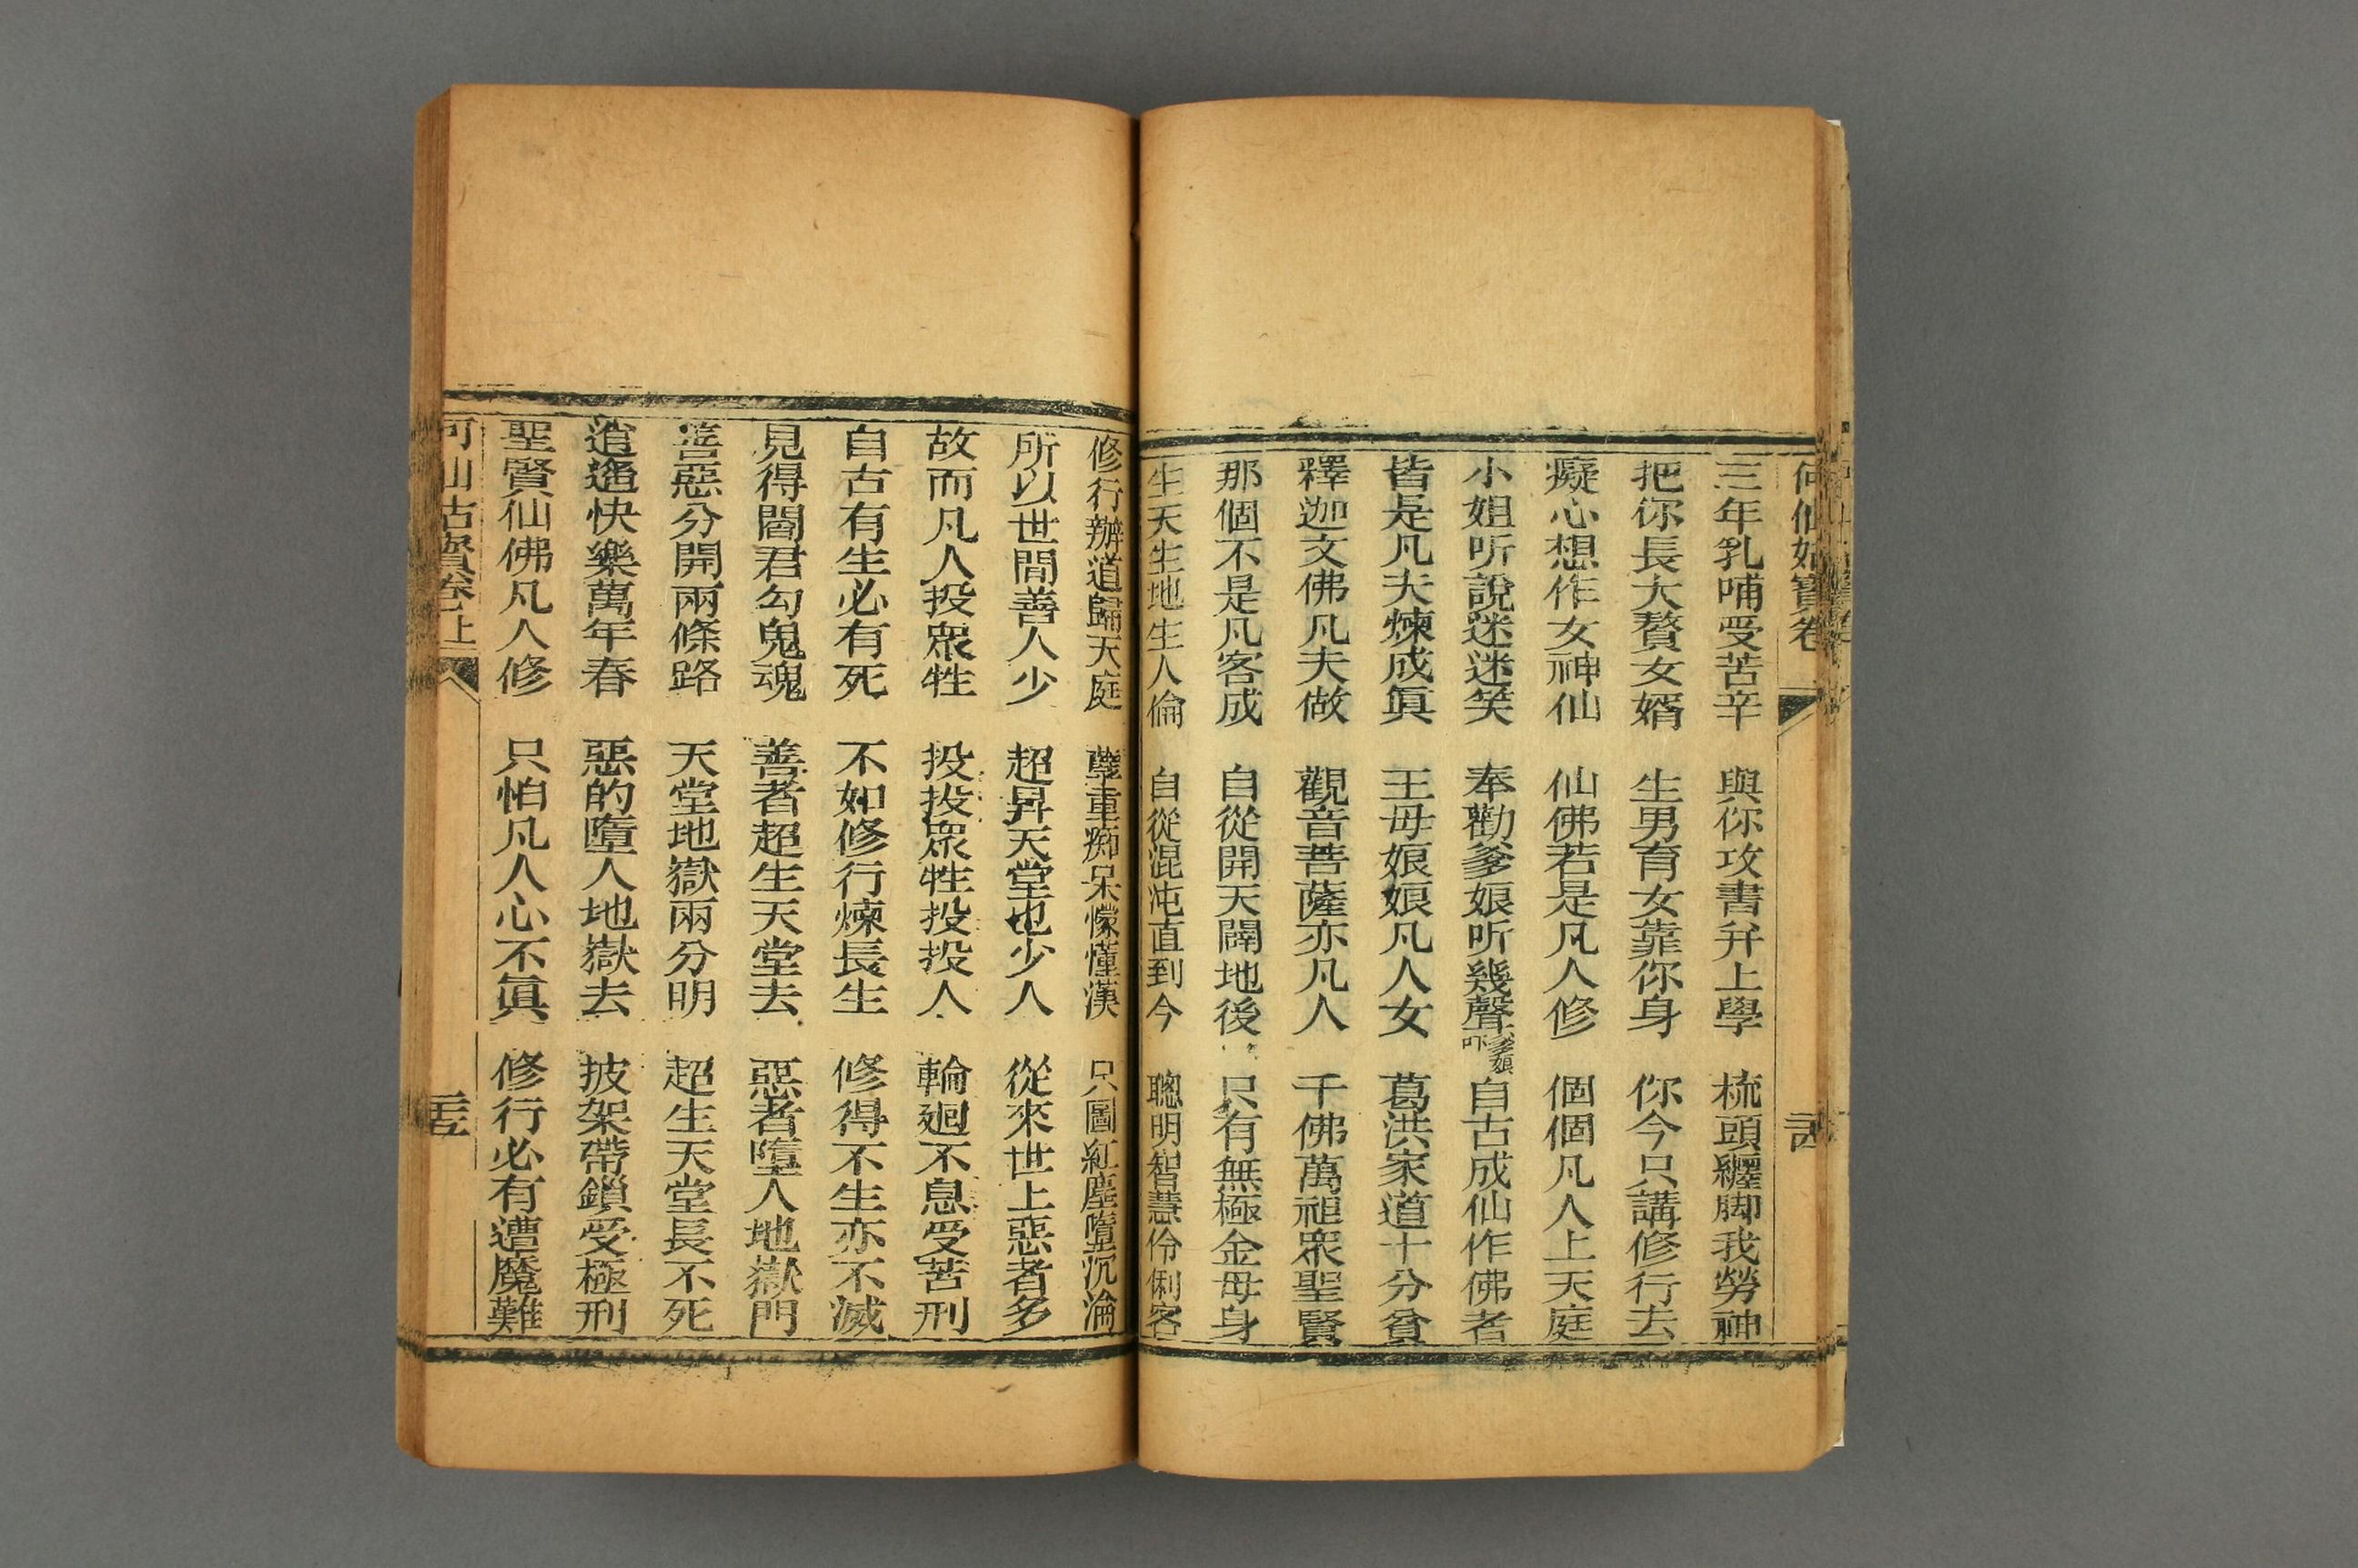 何仙姑寶卷
三年乳哺受苦辛 與你攻書并上學 梳頭纒脚我勞神
把你長大贅女婿 生男育女靠你身 你今只講修行去
癡心想作女神仙 仙佛若是凡人修 個個凡人上天庭
小姐听說迷迷笑 奉勸爹娘听幾聲 爹娘吓 自古成仙作佛者
皆是凡夫煉成眞 王母娘娘凡人女 葛洪家道十分貧
釋迦文佛凡夫做 觀音菩薩亦凡人 千佛萬祖眾聖賢
那個不是凡客成 自從開天闢地後 只有無極金母身
生天生地生人倫 自從混沌直到今 聰明智慧伶俐客
修行辦道歸天庭 孽重痴呆懞懂漢 只圖紅塵墮沉淪
所以世間善人少 超昇天堂也少人 從來世上惡者多
故而凡人投眾牲 投投眾牲投投人 輪廻不息受苦刑
自古有生必有死 不如修行煉長生 修得不生亦不滅
見得閻君勾鬼魂 善者超生天堂去 惡者墮人地獄門
善惡分開兩條路 天堂地獄兩分明 超生天堂長不死
逍遙快樂萬年春 惡的墮人地獄去 披架帶鎖受極刑
聖賢仙佛凡人修 只怕凡人心不眞 修行必有遭魔難
卷上